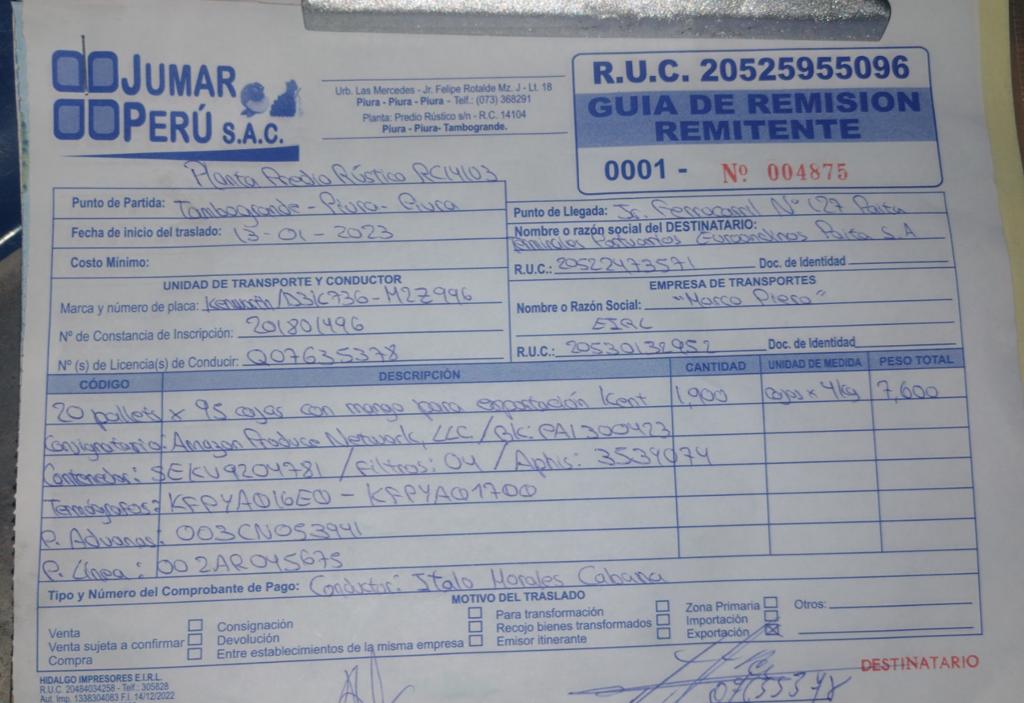 JUMAR PERÚ S.A.C.
Urb. Las Mercedes - Jr. Felipe Rotalde Mz. J - Lt. 18
Piura - Piura - Piura - Telf.: (073) 368291
Planta: Predio Rústico s/n - R.C. 14104
Piura - Piura- Tambogrande.
R.U.C. 20525955096
GUIA DE REMISION
REMITENTE
0001 - Nº 004875
Planta Predio Rústico RC14103
Punto de Partida: Tambogrande - Piura - Piura
Fecha de inicio del traslado: 13-01-2023
Costo Mínimo:
Punto de Llegada: Jr. Ferrocarril Nº 127 Paita
Nombre o razón social del DESTINATARIO:
Portuarios Euroandinos Paita S.A
R.U.C.: 20522473571 Doc. de Identidad
UNIDAD DE TRANSPORTE Y CONDUCTOR
Marca y número de placa: Kenworth/D3K736-M2Z996
Nº de Constancia de Inscripción: 201801496
Nº (s) de Licencia(s) de Conducir: Q07635378
EMPRESA DE TRANSPORTES
Nombre o Razón Social: "Marco Piero"
EIRL
R.U.C.: 20530132952 Doc. de Identidad
CÓDIGO DESCRIPCIÓN CANTIDAD UNIDAD DE MEDIDA PESO TOTAL
20 pallets x 95 cajas con mango para exportación Kent 1,900 cajas x 4kg 7,600
Consignatario: Amazon Produce Network, LLC / Bk: PAI300423
Contenedor: SEKU9204781 / Filtros: 04 / Aphis: 3534074
Termógrafos: KFPYA016E0 - KFPYA01700
P. Aduanas: 003CN053941
P. Línea: 002AR045675
Tipo y Número del Comprobante de Pago: Conductor: Italo Morales Cabana
MOTIVO DEL TRASLADO
Venta
Venta sujeta a confirmar
Compra
Consignación
Devolución
Entre establecimientos de la misma empresa
Para transformación
Recojo bienes transformados
Emisor itinerante
Zona Primaria
Importación
Exportación
Otros:
HIDALGO IMPRESORES E.I.R.L.
R.U.C. 20484034258 - Telf.: 305828
Aut. Imp. 1338304083 F.I. 14/12/2022
07635378
DESTINATARIO